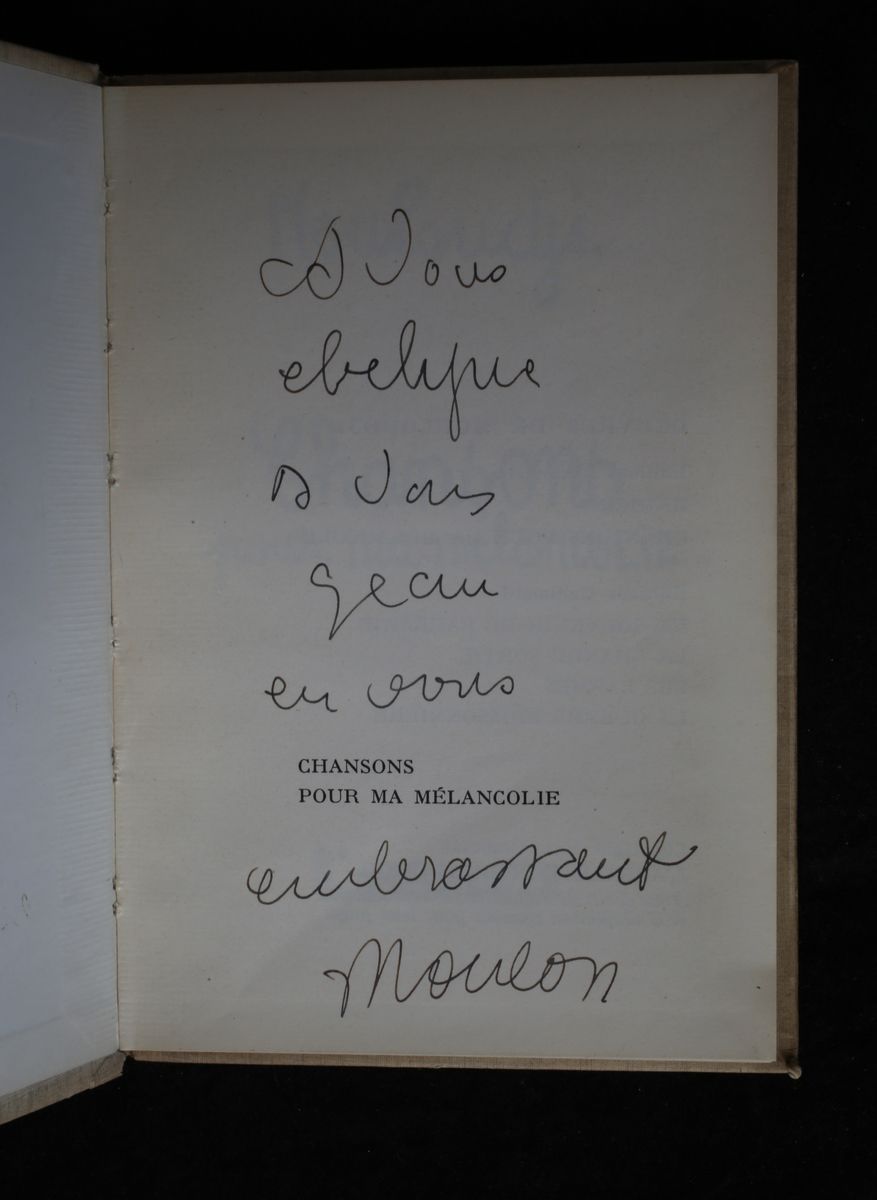 A Vous
evelyne
A Vous
Jean
en vous
CHANSONS
POUR MA MÉLANCOLIE
embrassant
Moulou